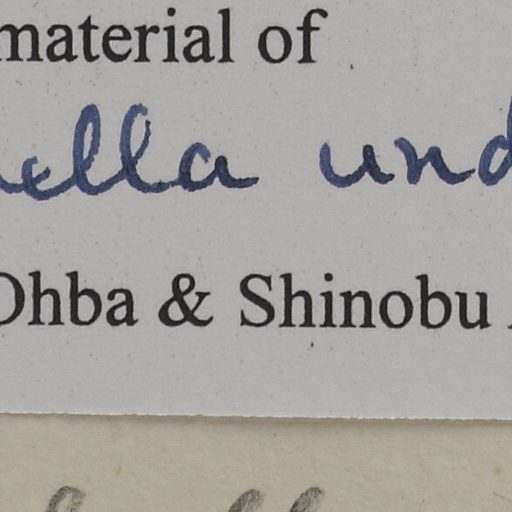 material of
ella und
Ohba & Shinobu